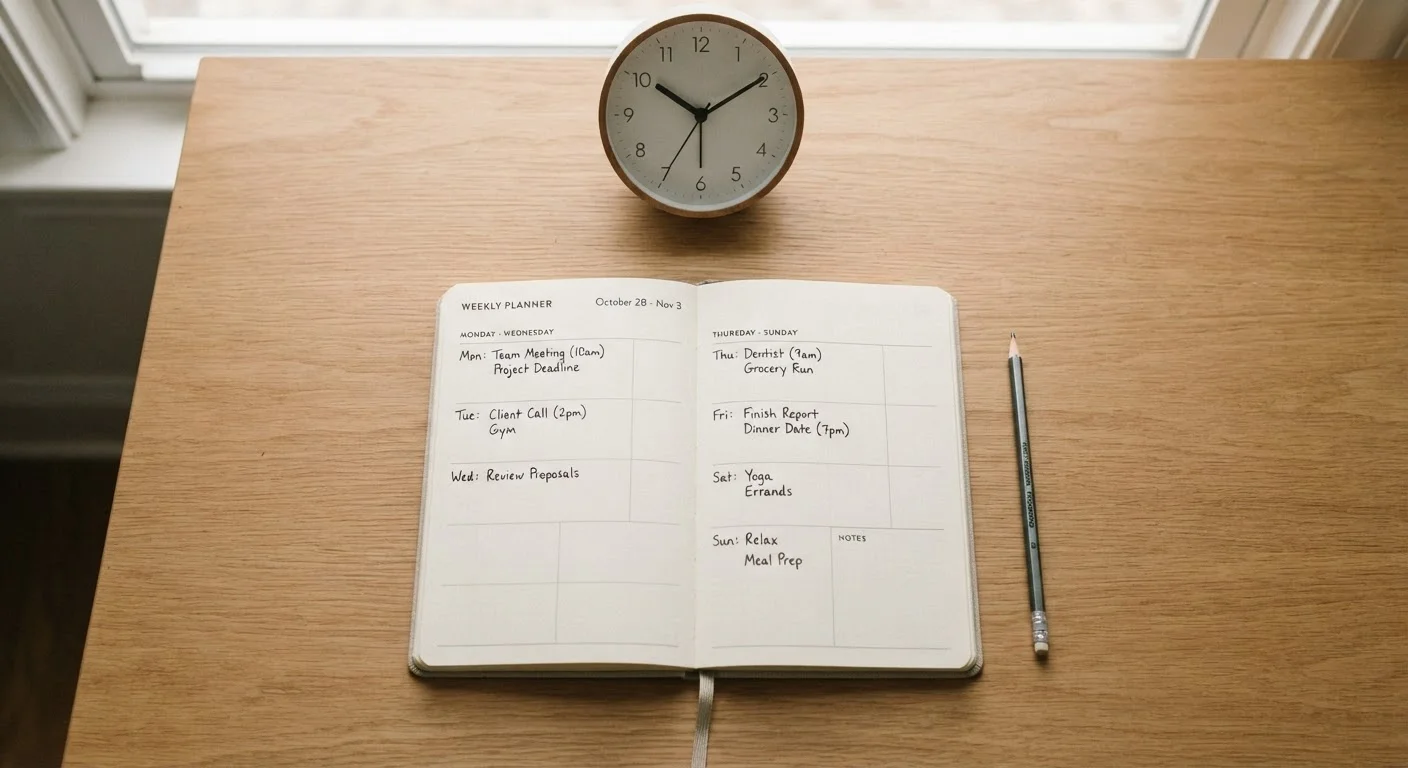 12
11 1
10 2
9 3
8 4
7 5
6
WEEKLY PLANNER October 28 - Nov 3
MONDAT - WEDNESDAY
Mon: Team Meeting (10am)
Project Deadline
Tue: Client Call (2pm)
Gym
Wed: Review Proposals
THUREDAY - SUNDAY
Thu: Dentist (9am)
Grocery Run
Fri: Finish Report
Dinner Date (7pm)
Sat: Yoga
Errands
Sun: Relax
Meal Prep
NOTES